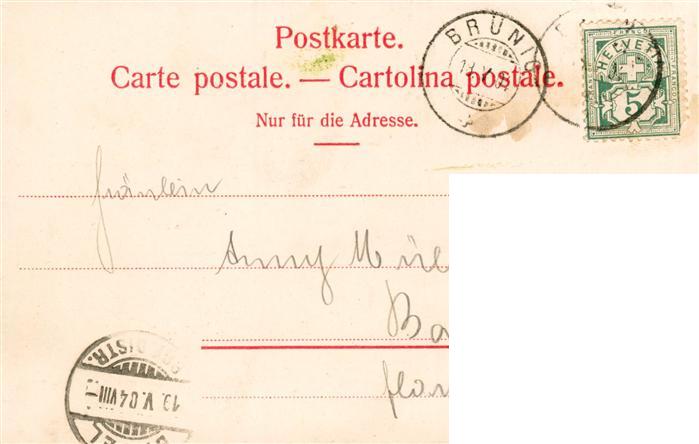 Postkarte.
Carte postale. — Cartolina postale.
Nur für die Adresse.
BRÜNIG
HELVETIA
5
Fräulein
Anny Mül
Ba
19. V. 04 VIII